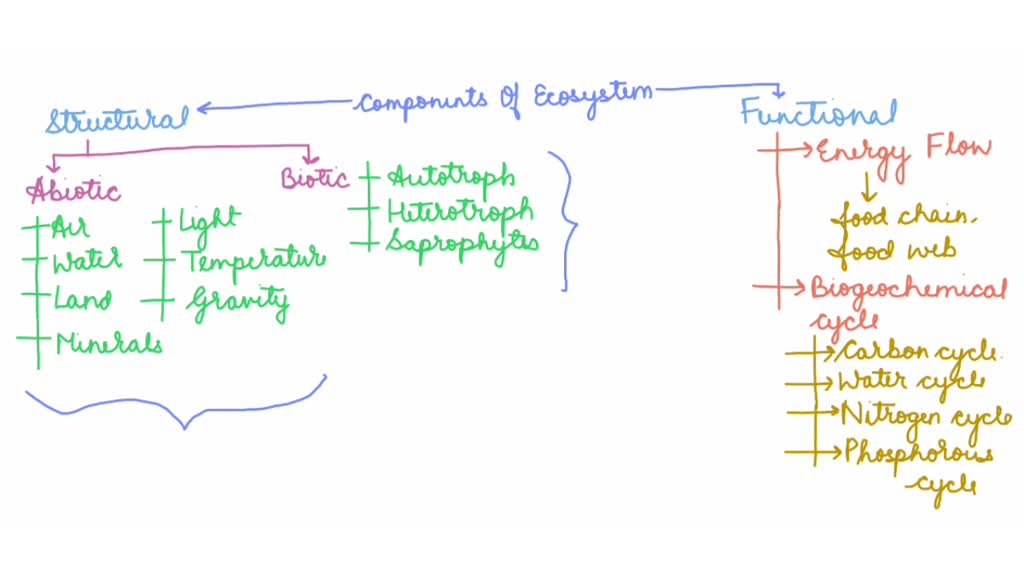 Components Of Ecosystem
Structural
Functional
Abiotic
Air
Water
Land
Minerals
Light
Temperatur
Gravity
Biotic
Autotroph
Heterotroph
Saprophytes
Energy Flow
food chain.
food web
Biogeochemical
cycle
Carbon cycle.
Water cycle
Nitrogen cycle
Phosphorous
cycle